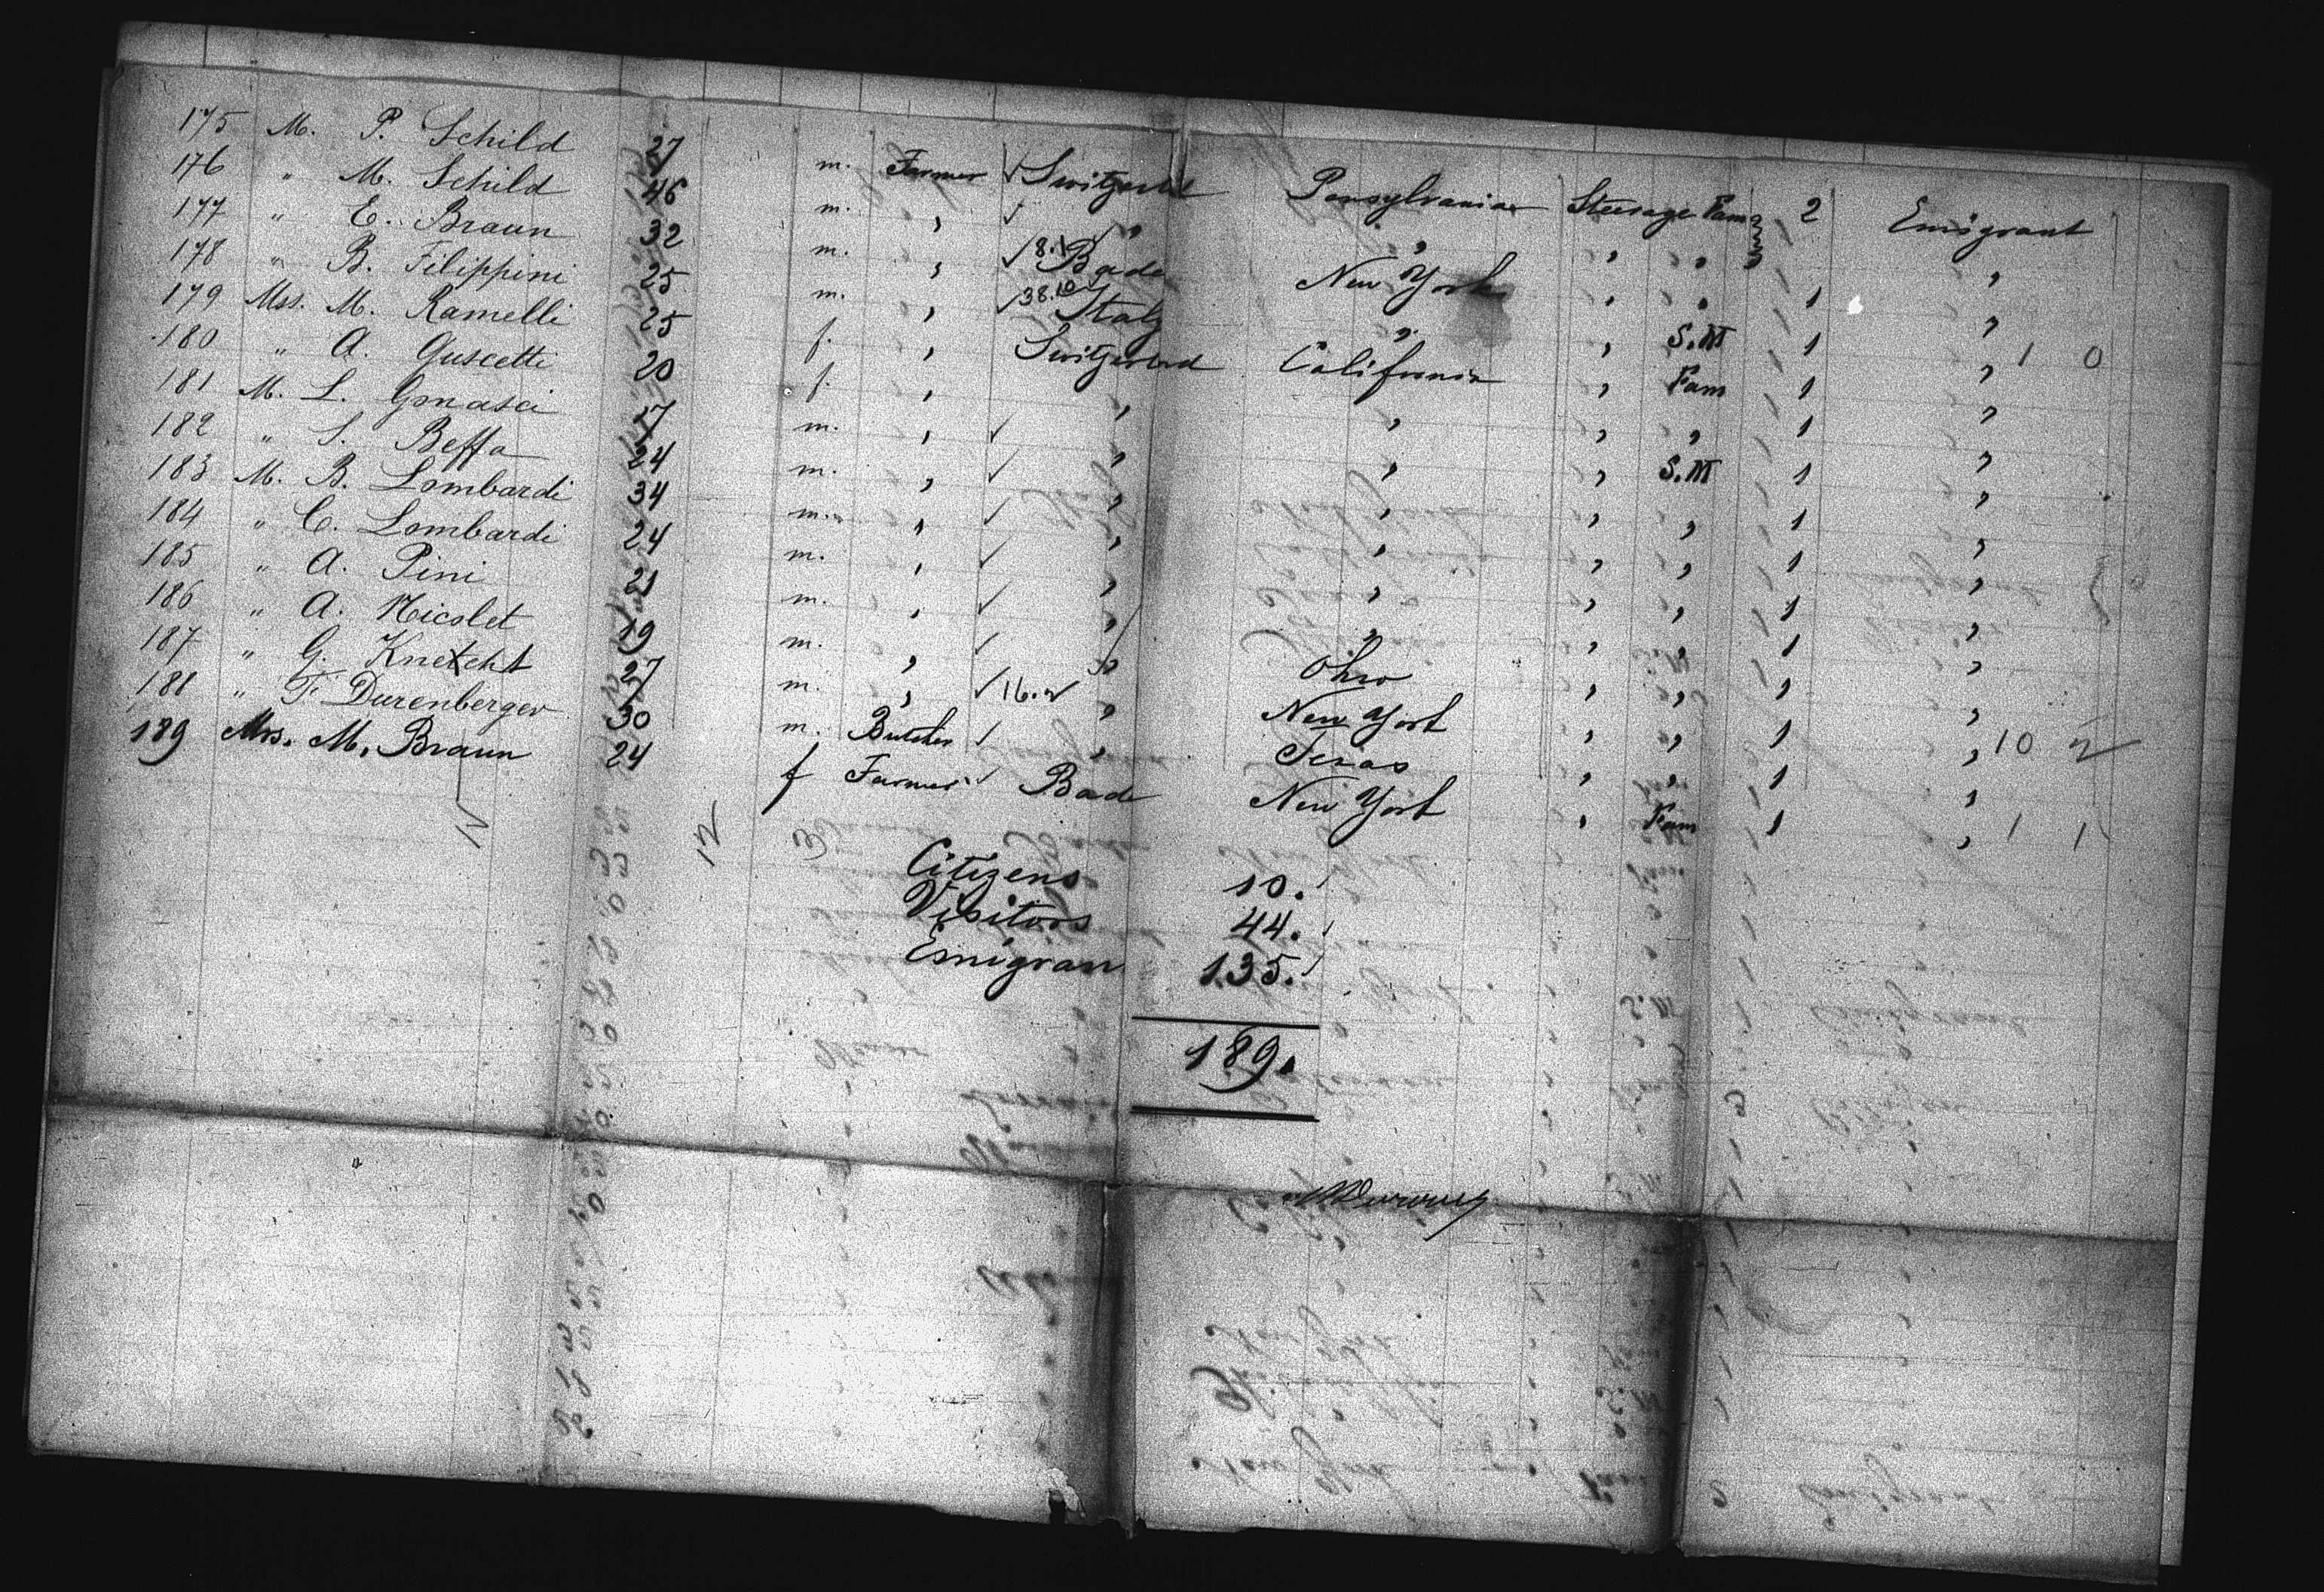 175 M. P. Schild 27 m. Farmer √ Switzerld Pensylvania Steerage Fam 2 Emigrant
176 " M. Schild 46 m. " √ " " " " "
177 " E. Braun 32 m. " √ 8.1 Bade New York " " 1 "
178 " B. Filippini 25 m. " √ 38.10 Italy " " S.M 1 " 1 0
179 Mss. M. Ramelli 25 f. " Switzerland California " Fam 1 "
180 " A. Guscetti 20 f. " " " " " 1 "
181 M. L. 17 m. " √ " " " S.M 1 "
182 " S. Beffa 24 m. " √ " " " " 1 "
183 M. B. Lombardi 34 m. " √ " " " " 1 "
184 " C. Lombardi 24 m. " √ " " " " 1 "
185 " A. Pini 21 m. " √ " " " " 1 "
186 " A. Nicolet 19 m. " √ " Ohio " " 1 "
187 " G. Knetcht 27 m. " √ 16.2 " New York " " 1 " 10 2
188 " F. Durenberger 30 m. Butcher √ " Texas " " 1 "
189 Mrs. M. Braun 24 f Farmer √ Bade New York " Fam 1 " 1 1
12
Citizens 10.
Visitors 44.
Emigran 135.
189.